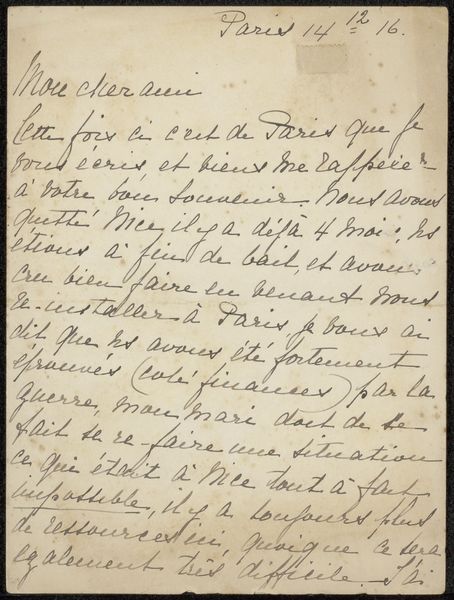 Paris 14 12 16.
Mon cher ami
Cette fois ci c'est de Paris que je
vous écris, et viens me rappeler
à votre bon souvenir. Nous avons
quitté Nice il y a déjà 4 mois, ns
étions à fin de bail, et avons
cru bien faire en venant nous
re-installer à Paris, je vous ai
dit que ns avons été fortement
éprouvés (coté finances) par la
guerre, mon mari doit de ce
fait se re-faire une situation
ce qui était à Nice tout à fait
impossible, il y a toujours plus
de ressources ici, quoique ce sera
également très difficile. J'ai